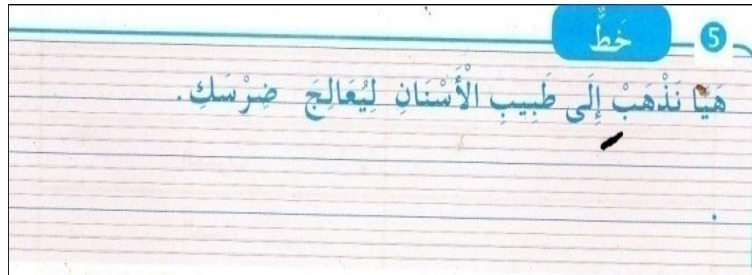 5 خَطٌّ
هَيَّا نَذْهَبْ إِلَى طَبِيبِ الْأَسْنَانِ لِيُعَالِجَ ضِرْسَكِ.